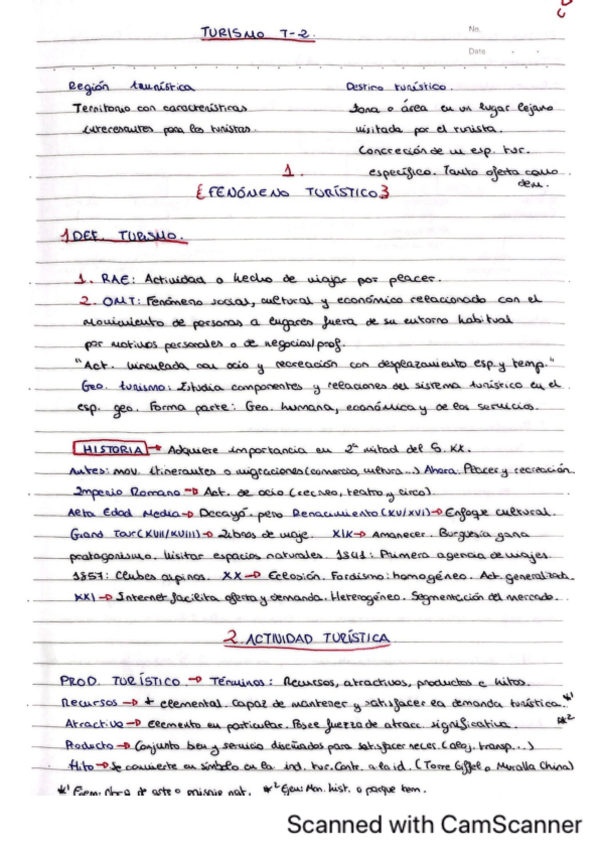 TURISMO T-2.
No.
Date
Región turística
Destino turístico.
Territorio con características
interesantes para los turistas.
Zona o área en un lugar lejano
visitada por el turista.
Concreción de un esp. tur.
específico. Tanto oferta como
dem.
1.
{FENÓMENO TURÍSTICO}
1 DEF. TURISMO.
1. RAE: Actividad o hecho de viajar por placer.
2. OMT: Fenómeno social, cultural y económico relacionado con el
movimiento de personas a lugares fuera de su entorno habitual
por motivos personales o de negocios/prof.
"Act. vinculada con ocio y recreación con desplazamiento esp. y temp."
Geo. turismo: Estudia componentes y relaciones del sistema turístico en el
esp. geo. Forma parte: Geo. humana, económica y de los servicios.
HISTORIA → Adquiere importancia en 2ª mitad del S. XX.
Antes: mov. itinerantes o migraciones (comercio, cultura...) Ahora. Placer y recreación.
Imperio Romano → Act. de ocio (recreo, teatro y circo).
Alta Edad Media → Decayó. pero Renacimiento (XV/XVI) → Enfoque cultural.
Grand Tour (XVII/XVIII) → Libros de viaje. XIX → Amanecer. Burguesía gana
protagonismo. Visitar espacios naturales. 1841: Primera agencia de viajes.
1857: Clubes alpinos. XX → Eclosión. Fordismo: homogéneo. Act. generalizada.
XXI → Internet facilita oferta y demanda. Heterogéneo. Segmentación del mercado.
2. ACTIVIDAD TURÍSTICA
PROD. TURÍSTICO → Términos: Recursos, atractivos, productos e hitos.
Recursos → + elemental. Capaz de mantener y satisfacer la demanda turística. *1
Atractivo → Elemento en particular. Posee fuerza de atracc. significativa. *2
Producto → Conjunto bien y servicio diseñados para satisfacer neces. (aloj. transp...)
Hito → Se convierte en símbolo en la ind. tur. Contr. a la id. (Torre Eiffel o Muralla China)
*1 Ejem: Obra de arte o paisaje nat. *2 Ejem: Mon. hist. o parque tem.
Scanned with CamScanner